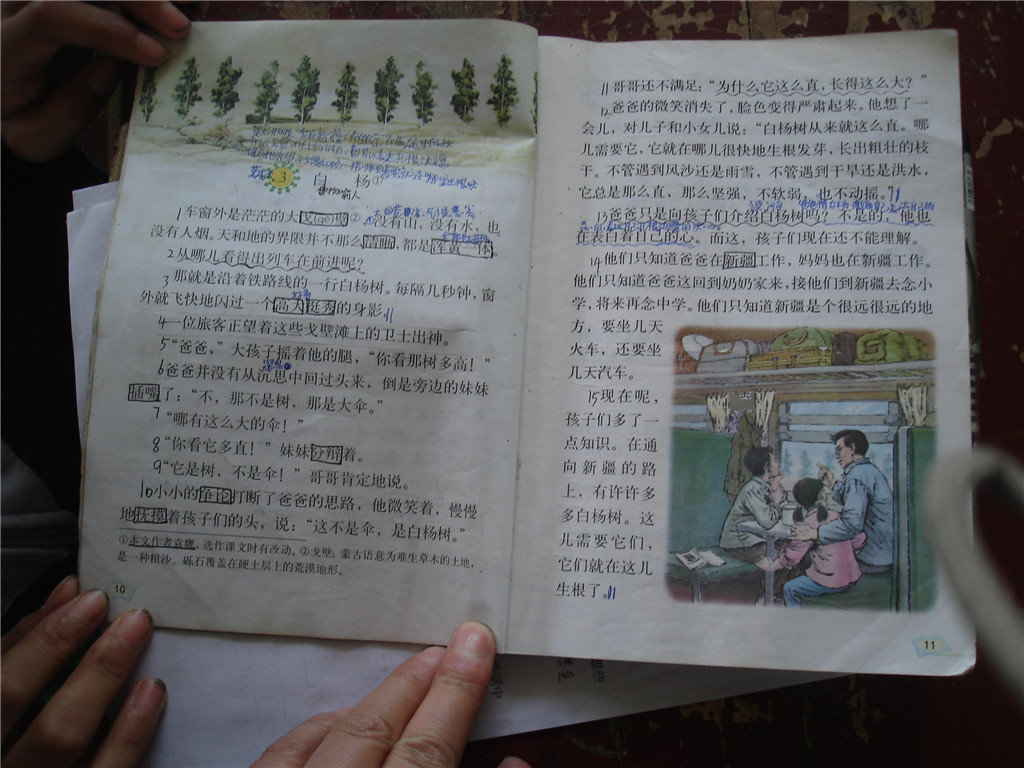 3
白 杨①
1车窗外是茫茫的大戈(gē)壁②,没有山,没有水,也
没有人烟。天和地的界限并不那么清晰,都是浑黄一体。
2从哪儿看得出列车在前进呢?
3那就是沿着铁路线的一行白杨树。每隔几秒钟,窗
外就飞快地闪过一个高大挺秀的身影。
4一位旅客正望着这些戈壁滩上的卫士出神。
5“爸爸,”大孩子摇着他的腿,“你看那树多高!”
6爸爸并没有从沉思中回过头来,倒是旁边的妹妹
插嘴了:“不,那不是树,那是大伞。”
7“哪有这么大的伞!”
8“你看它多直!”妹妹分辩着。
9“它是树,不是伞!”哥哥肯定地说。
10小小的争论打断了爸爸的思路,他微笑着,慢慢
地抚摸着孩子们的头,说:“这不是伞,是白杨树。”
①本文作者袁鹰,选作课文时有改动。②戈壁:蒙古语意为难生草木的土地,
是一种粗沙、砾石覆盖在硬土层上的荒漠地形。
10
11哥哥还不满足:“为什么它这么直,长得这么大?”
12爸爸的微笑消失了,脸色变得严肃起来。他想了一
会儿,对儿子和小女儿说:“白杨树从来就这么直。哪
儿需要它,它就在哪儿很快地生根发芽,长出粗壮的枝
干。不管遇到风沙还是雨雪,不管遇到干旱还是洪水,
它总是那么直,那么坚强,不软弱,也不动摇。”
13爸爸只是向孩子们介绍白杨树吗?不是的,他也
在表白着自己的心。而这,孩子们现在还不能理解。
14他们只知道爸爸在新疆工作,妈妈也在新疆工作。
他们只知道爸爸这回到奶奶家来,接他们到新疆去念小
学,将来再念中学。他们只知道新疆是个很远很远的地
方,要坐几天
火车,还要坐
几天汽车。
15现在呢,
孩子们多了一
点知识。在通
向新疆的路
上,有许许多
多白杨树。这
儿需要它们,
它们就在这儿
生根了。
11